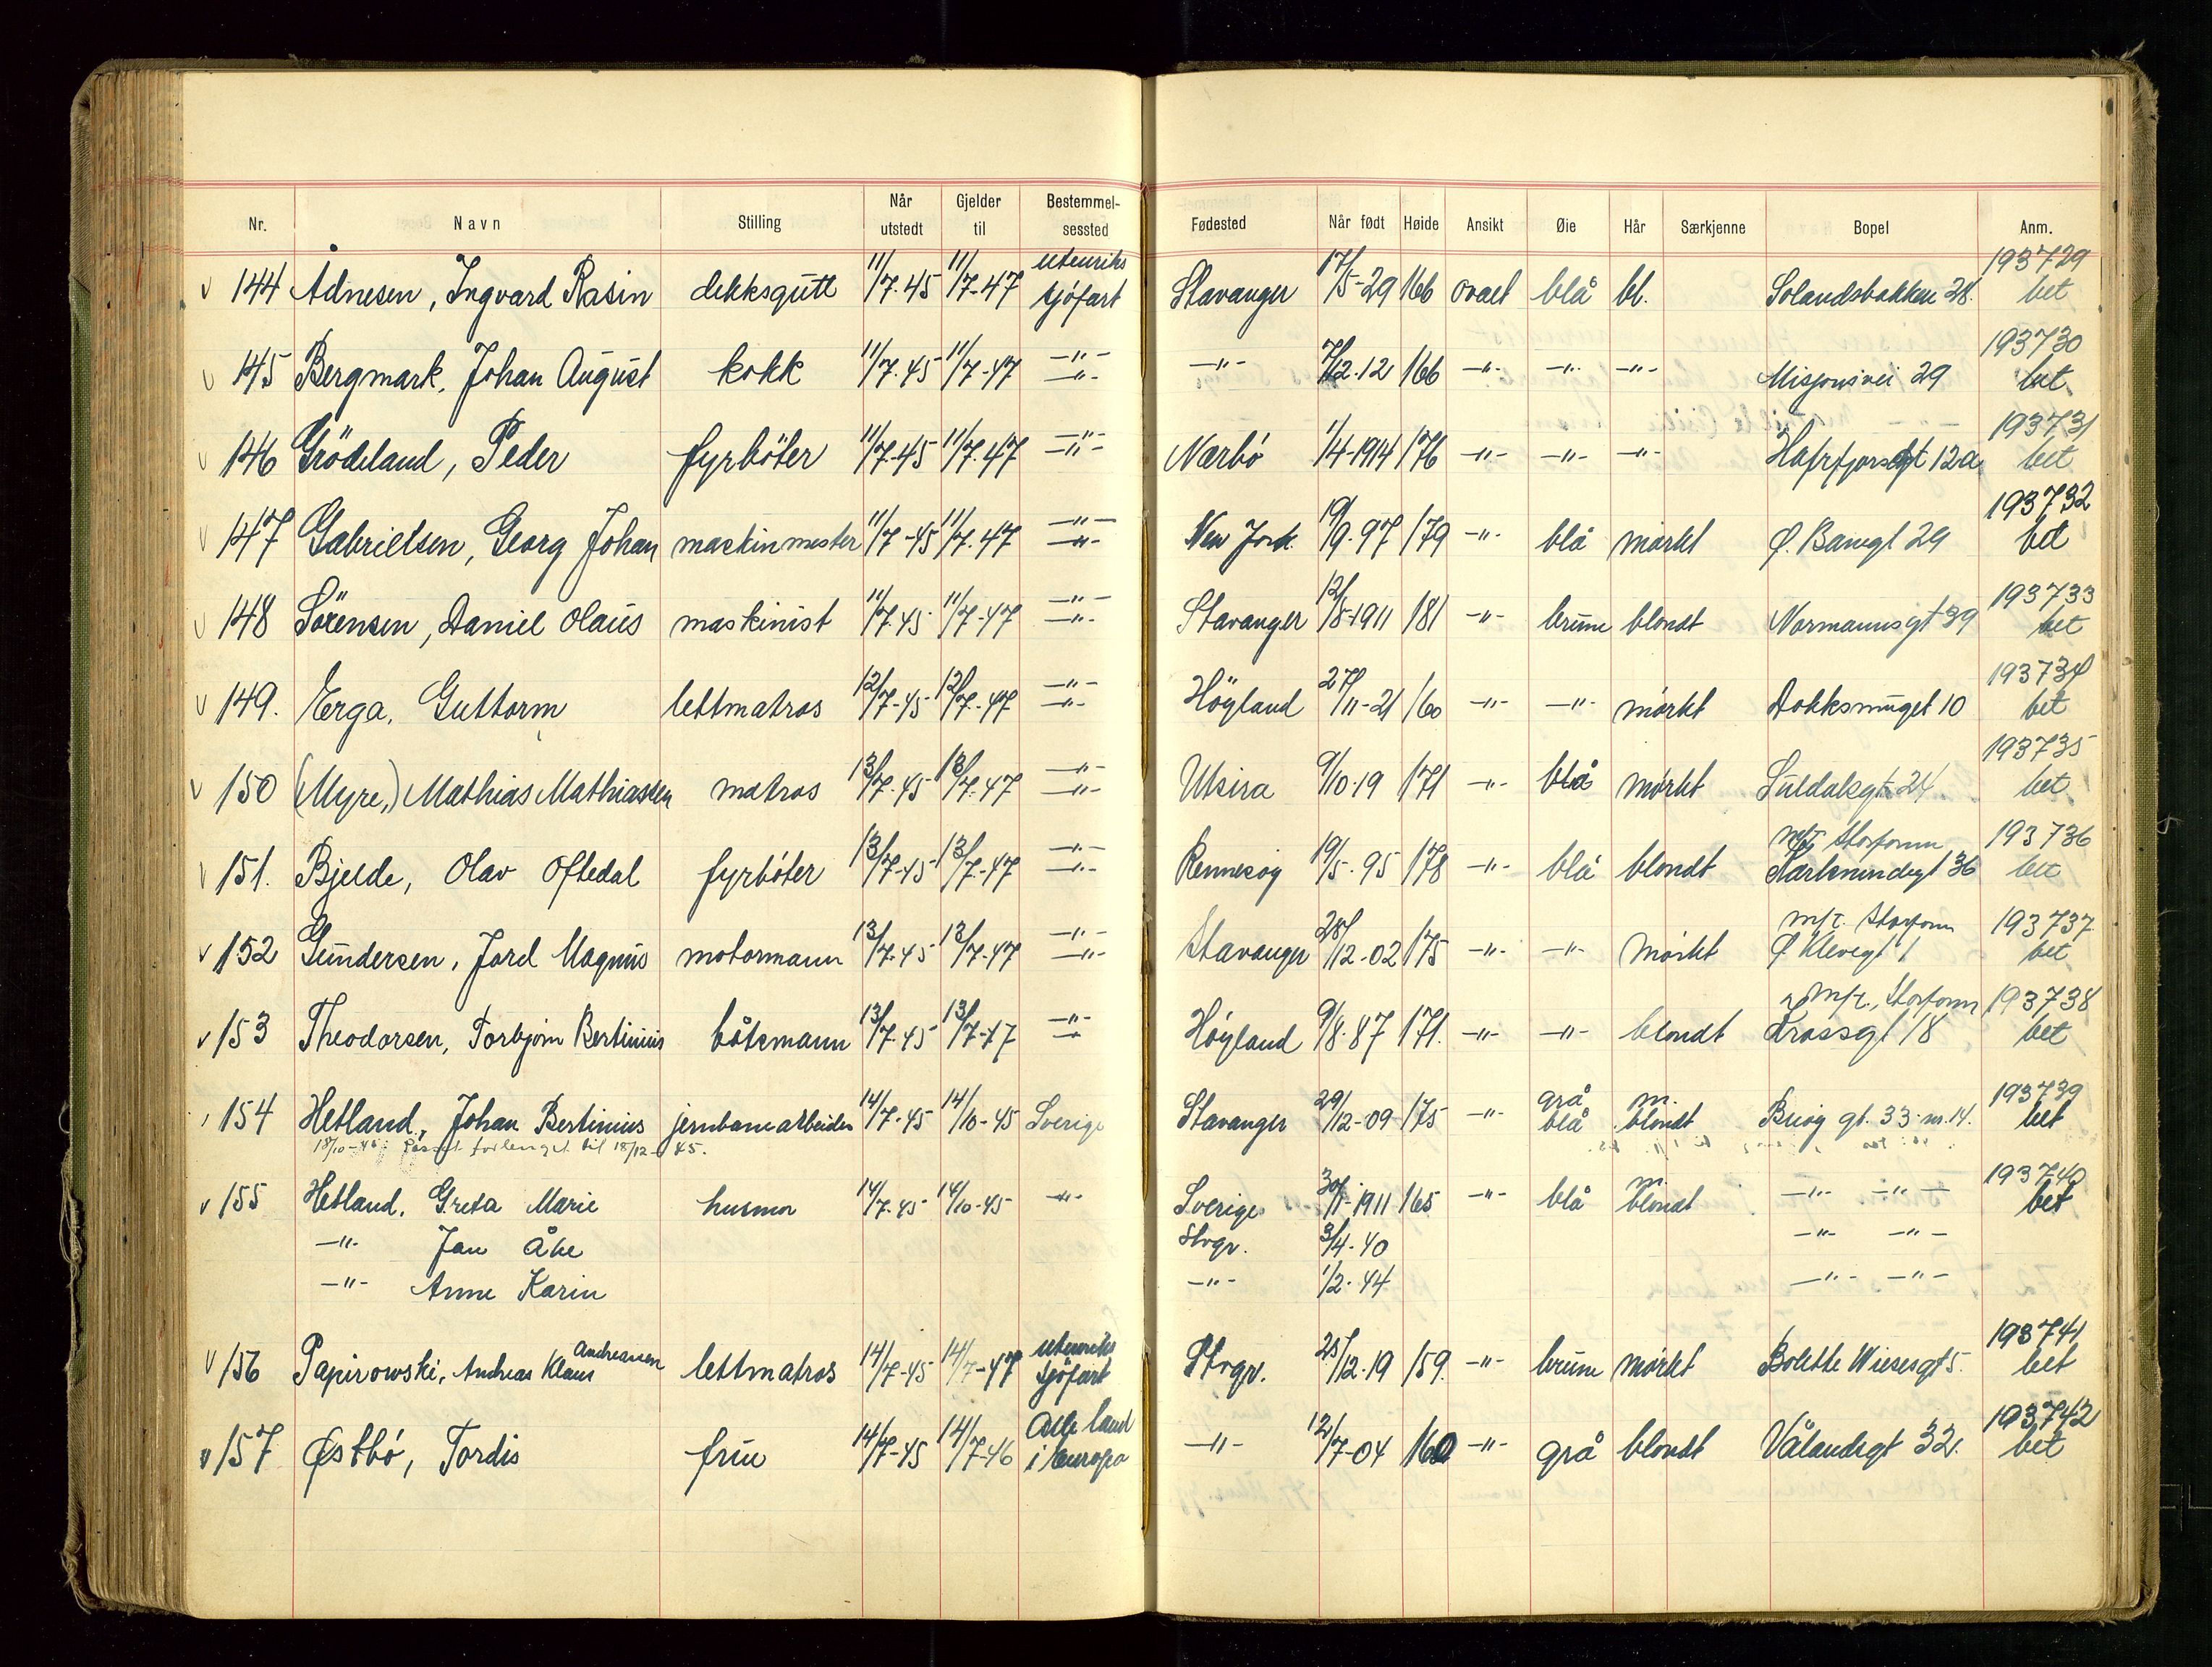 Nr. Navn Stilling Når utstedt Gjelder til Bestemmelsessted Fødested Når født Høide Ansikt Øie Hår Særkjenne Bopel Anm.
v 144 Ådnesen, Ingvard Rasin dekksgutt 11/7-45 11/7-47 utenriks sjøfart Stavanger 17/5-29 166 ovalt blå bl. Solandsbakken 28. 193729 bet
v 145 Bergmark, Johan August kokk 11/7-45 11/7-47 -"- -"- -"- 7/12-12 166 -"- -"- -"- Misjonsvei 29 193730 bet
v 146 Grödeland, Peder fyrböter 11/7-45 11/7-47 -"- -"- Nærbö 1/4-1914 176 -"- -"- -"- Hafrfjordgt 12a 193731 bet
v 147 Gabrielsen, Georg Johan maskinmester 11/7-45 11/7-47 -"- -"- New York 19/9-97 179 -"- blå mørkt Ø. Banegt 29 193732 bet
v 148 Sörensen, Daniel Olaus maskinist 11/7-45 11/7-47 -"- -"- Stavanger 12/8-1911 181 -"- brune blondt Normannsgt 39 193733 bet
v 149. Erga, Guttorm lettmatros 12/7-45 12/7-47 -"- -"- Höyland 27/11-21 160 -"- -"- mørkt Dokksmuget 10 193734 bet
v 150 (Myre,) Mathias Mathiassen matros 13/7-45 13/7-47 -"- -"- Utsira 9/10-19 171 -"- blå mørkt Suldalsgt 24 193735 bet
v 151. Bjelde, Olav Oftedal fyrböter 13/7-45 13/7-47 -"- -"- Rennesøy 19/5-95 178 -"- blå blondt m/t. Storfonn 36 193736 bet
v 152 Gundersen, Jarl Magnus motormann 13/7-45 13/7-47 -"- -"- Stavanger 28/12-02 175 -"- -"- mørkt m/t. Storfonn Ø Klevegt 1 193737 bet
v 153 Theodorsen, Torbjørn Bertinius båtsmann 13/7-45 13/7-47 -"- -"- Höyland 9/8-87 171. -"- -"- blondt m/t. Storfonn Trossgt 18 193738 bet
154 Hetland, Johan Bertinius jernbanearbeider 14/7-45 14/10-45 Sverige Stavanger 29/12-09 175 -"- grå blå m. blondt Buøy gt. 33 m.14. 193739 bet
18/10-45: Passet forlenget til 18/12-45.
v 155 Hetland, Greta Marie husmor 14/7-45 14/10-45 -"- Sverige 30/11-1911 165 -"- blå m. blondt -"- -"- 193740 bet
-"- Jan Åke Stvgr. 3/4-40 -"- -"-
-"- Anne Karin -"- 1/2-44 -"- -"-
v 156 Papirowski, Andreas Klaus Andreassen lettmatros 14/7-45 14/7-47 utenriks sjöfart Stvgr. 25/12-19 159. -"- brune mørkt Bolette Wiesesgt 5. 193741 bet
v 157 Østbö, Tordis frue 14/7-45 14/7-46 Alle land i Europa -"- 12/7-04 160 -"- grå blondt Vålandsgt 32. 193742 bet